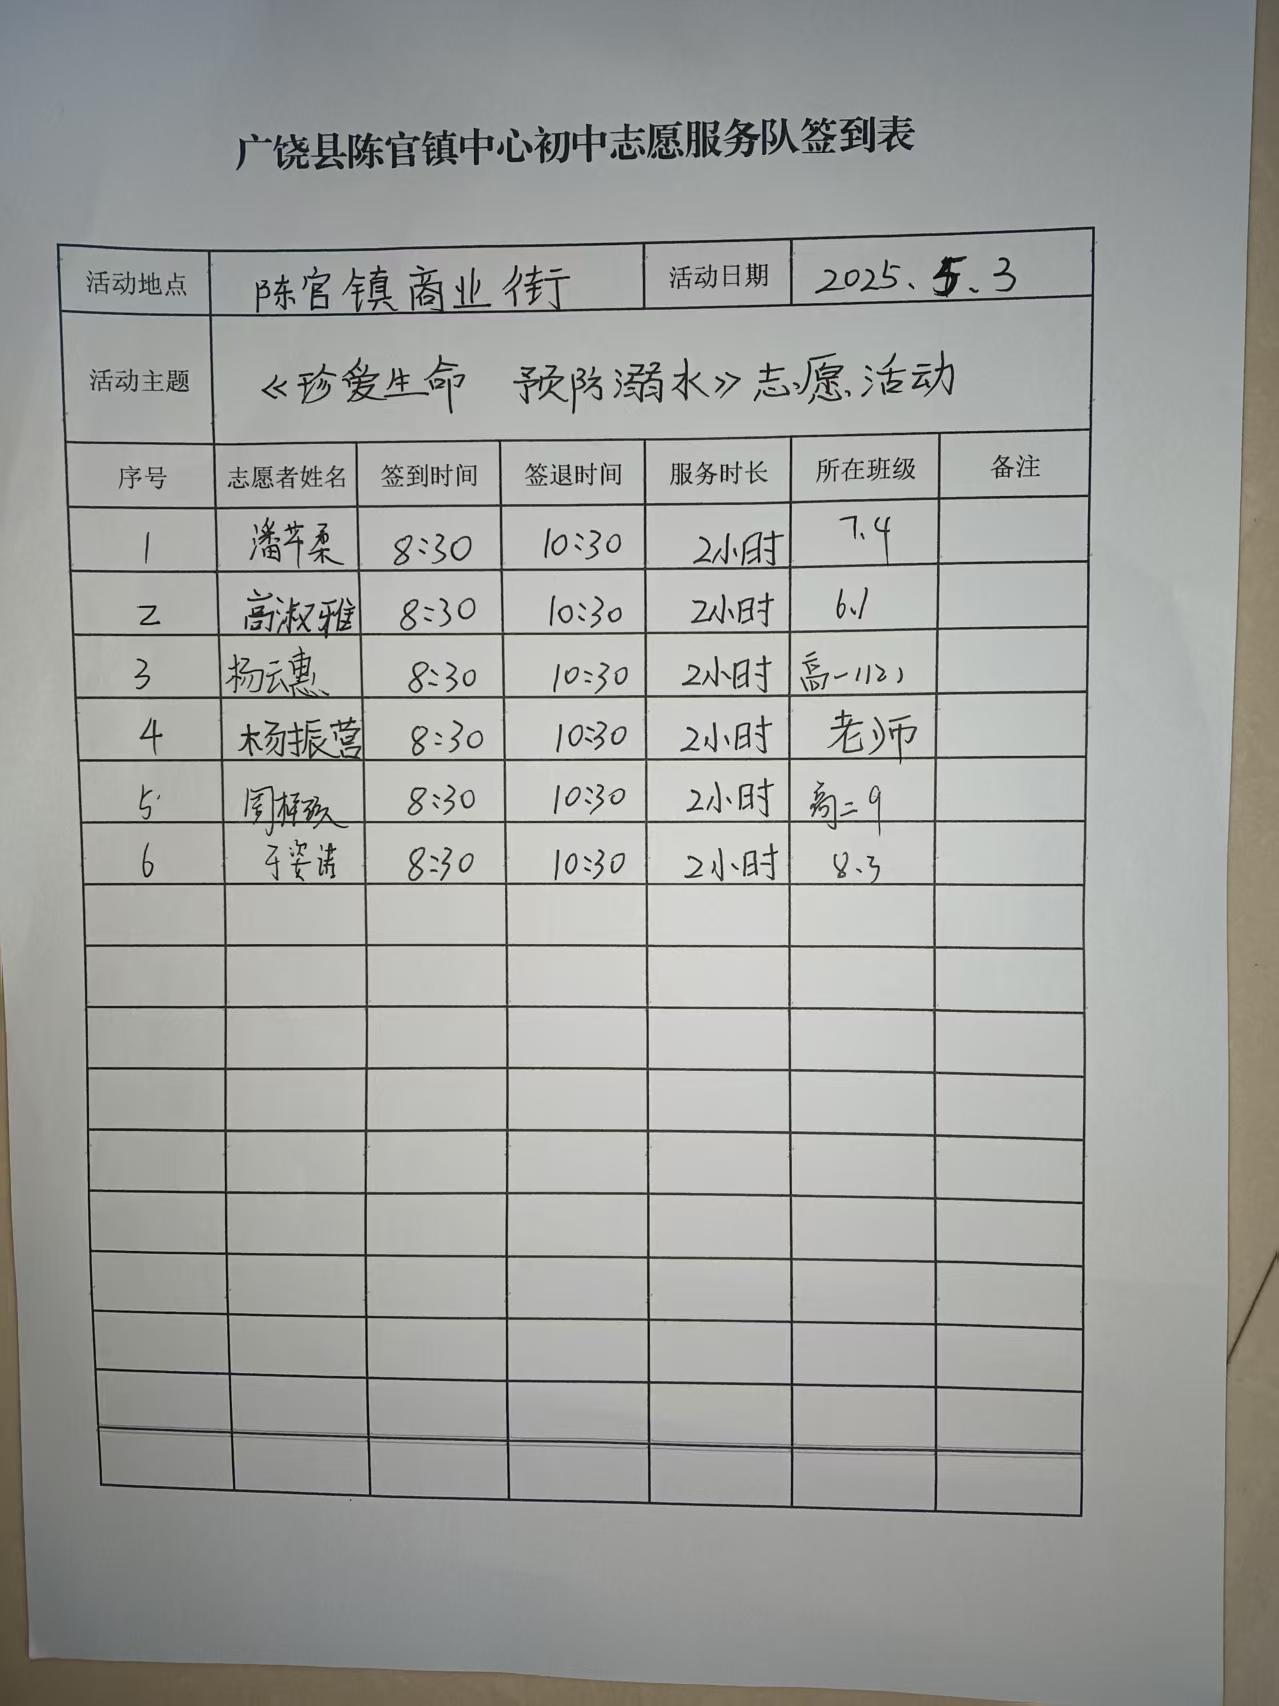 广饶县陈官镇中心初中志愿服务队签到表
活动地点 陈官镇商业街 活动日期 2025、5、3
活动主题 《珍爱生命 预防溺水》志愿活动
序号 志愿者姓名 签到时间 签退时间 服务时长 所在班级 备注
1 潘芊柔 8:30 10:30 2小时 7、4
2 高淑雅 8:30 10:30 2小时 6、1
3 杨云惠 8:30 10:30 2小时 高一(12)
4 杨振营 8:30 10:30 2小时 老师
5 周梓 8:30 10:30 2小时 高二9
6 于姿诺 8:30 10:30 2小时 8、3